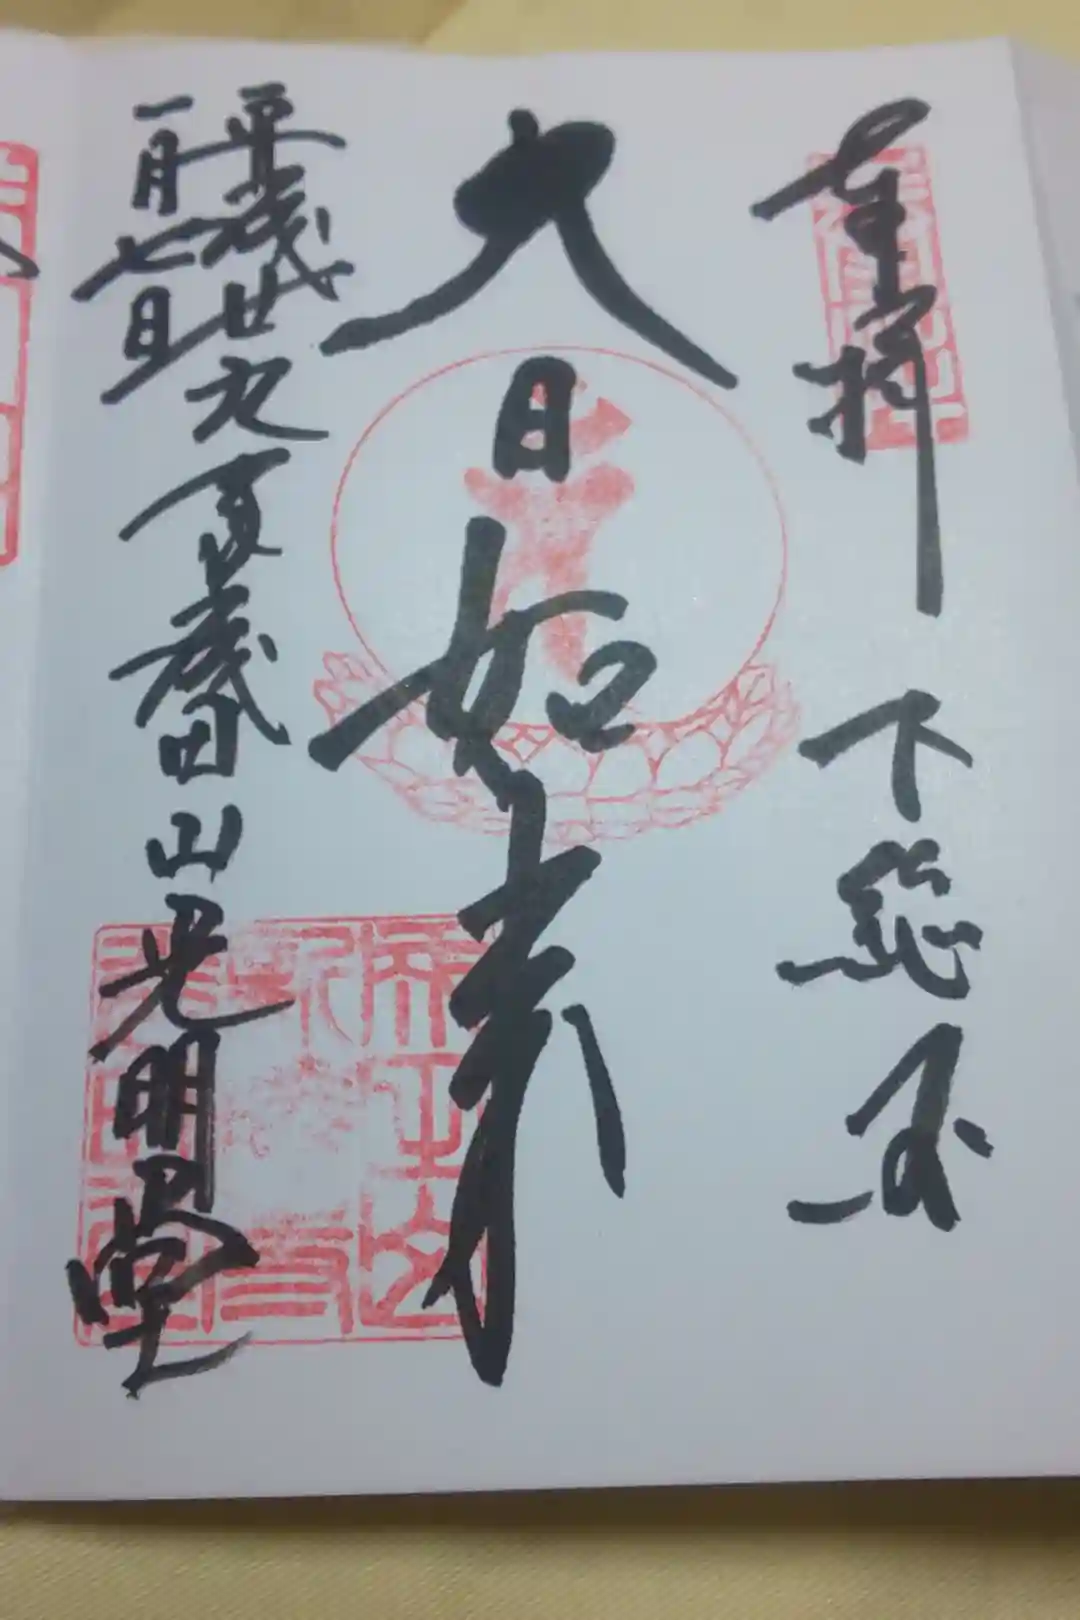 奉拝　下総国
大日如来
平成廿九年成田山光明堂
一月七日